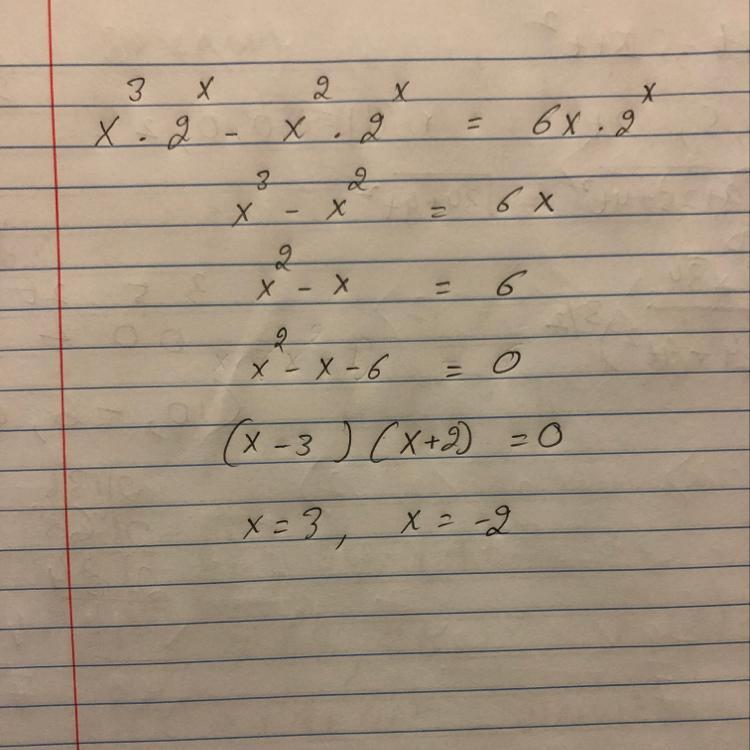 x³ · 2ˣ - x² · 2ˣ = 6x · 2ˣ
x³ - x² = 6x
x² - x = 6
x² - x - 6 = 0
(x - 3) (x + 2) = 0
x = 3, x = -2